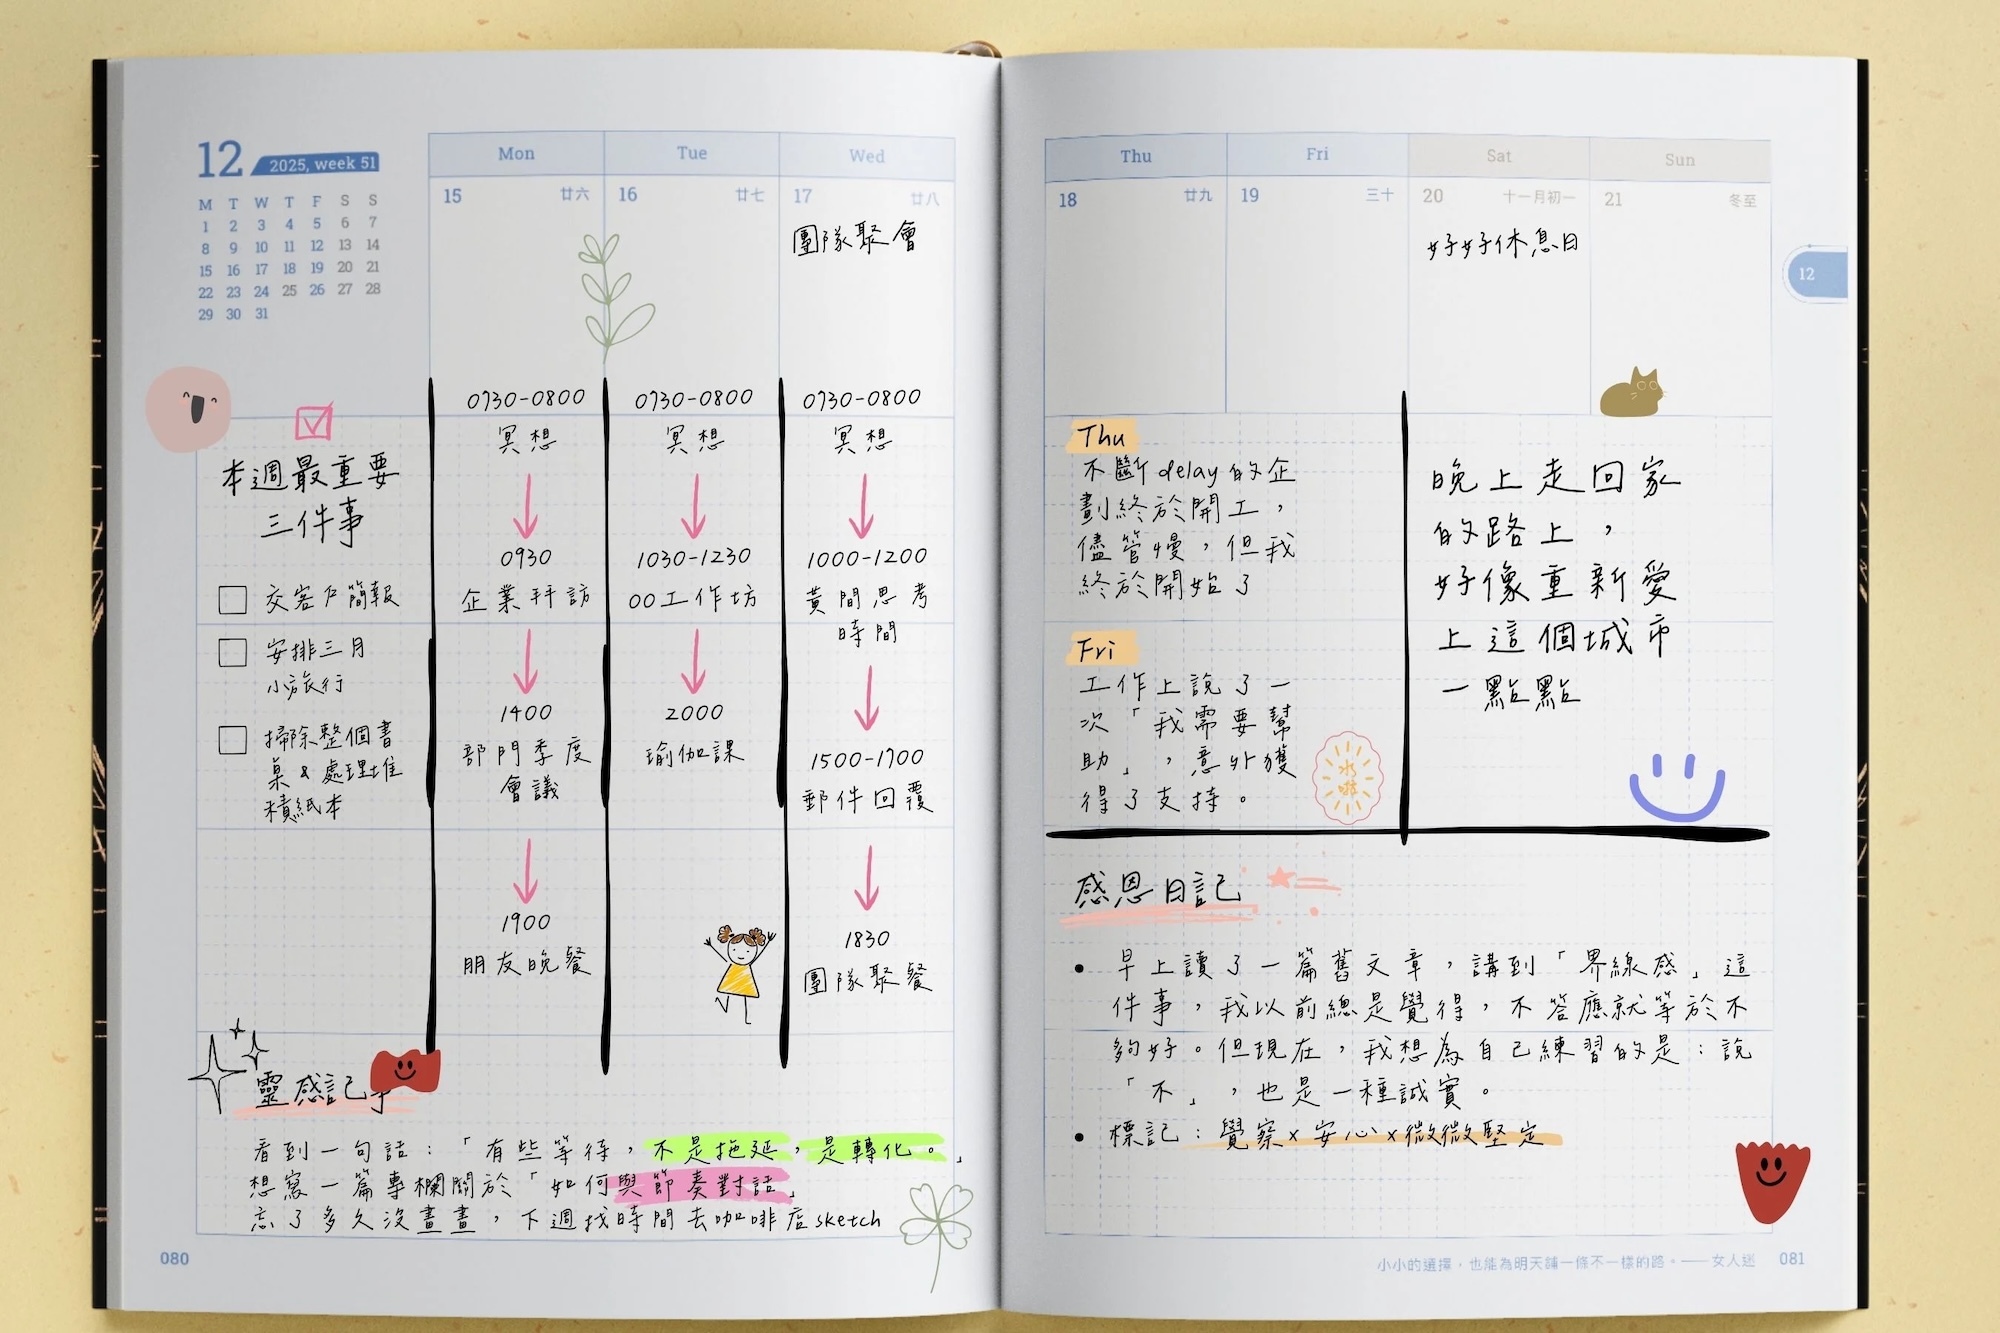 12 2025, week 51
M T W T F S S
1 2 3 4 5 6 7
8 9 10 11 12 13 14
15 16 17 18 19 20 21
22 23 24 25 26 27 28
29 30 31
Mon Tue Wed
15 廿六 16 廿七 17 廿八
團隊聚會
本週最重要
三件事
交客戶簡報
安排三月
小旅行
掃除整個書
桌&處理堆
積紙本
0730-0800
冥想
0930
企業拜訪
1400
部門季度
會議
1900
朋友晚餐
0730-0800
冥想
1030-1230
OO工作坊
2000
瑜伽課
0730-0800
冥想
1000-1200
黃間思考
時間
1500-1700
郵件回覆
1830
團隊聚餐
靈感記事
看到一句話：「有些等待，不是拖延，是轉化。」
想寫一篇專欄關於「如何與節奏對話」
忘了多久沒畫畫，下週找時間去咖啡店sketch
080
Thu Fri Sat Sun
18 廿九 19 三十 20 十一月初一 21 冬至
好好休息日
12
Thu
不斷delay的企
劃終於開工，
儘管慢，但我
終於開始了
Fri
工作上說了一
次「我需要幫
助」，意外獲
得了支持。
水啦
晚上走回家
的路上，
好像重新愛
上這個城市
一點點
感恩日記
• 早上讀了一篇舊文章，講到「界線感」這
件事，我以前總是覺得，不答應就等於不
夠好。但現在，我想為自己練習的是：說
「不」，也是一種誠實。
• 標記：覺察×安心×微微堅定
小小的選擇，也能為明天舖一條不一樣的路。——女人迷 081